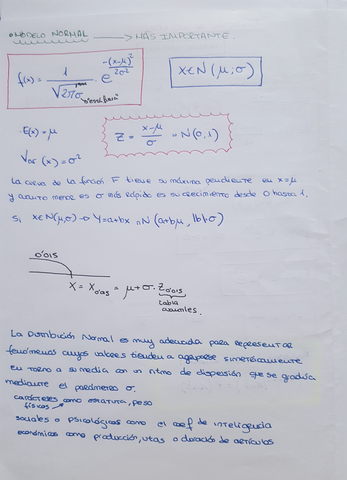 • MODELO NORMAL → MÁS IMPORTANTE.
f(x) = 1/√2πσ · e^(-(x-μ)²/2σ²)
X∈N(μ, σ)
E(x) = μ
Z = x-μ/σ = N(0,1)
Var (x) = σ²
La curva de la función F tiene su máxima pendiente en x=μ
y cuanto menor es σ más rápido es su crecimiento desde 0 hasta 1.
Si X∈N(μ,σ) → Y=a+bx = N(a+bμ, |b|·σ)
0'015
= μ + σ · Z0'015
tabla
La Distribución Normal es muy adecuada para representar
fenómenos cuyos valores tienden a agruparse simétricamente
en torno a su media con un ritmo de dispersión que se gradúa
mediante el parámetro σ.
caracteres como estatura, peso
físicos
sociales o psicológicos como el coef de inteligencia
económicos como producción, vtas o duración de artículos